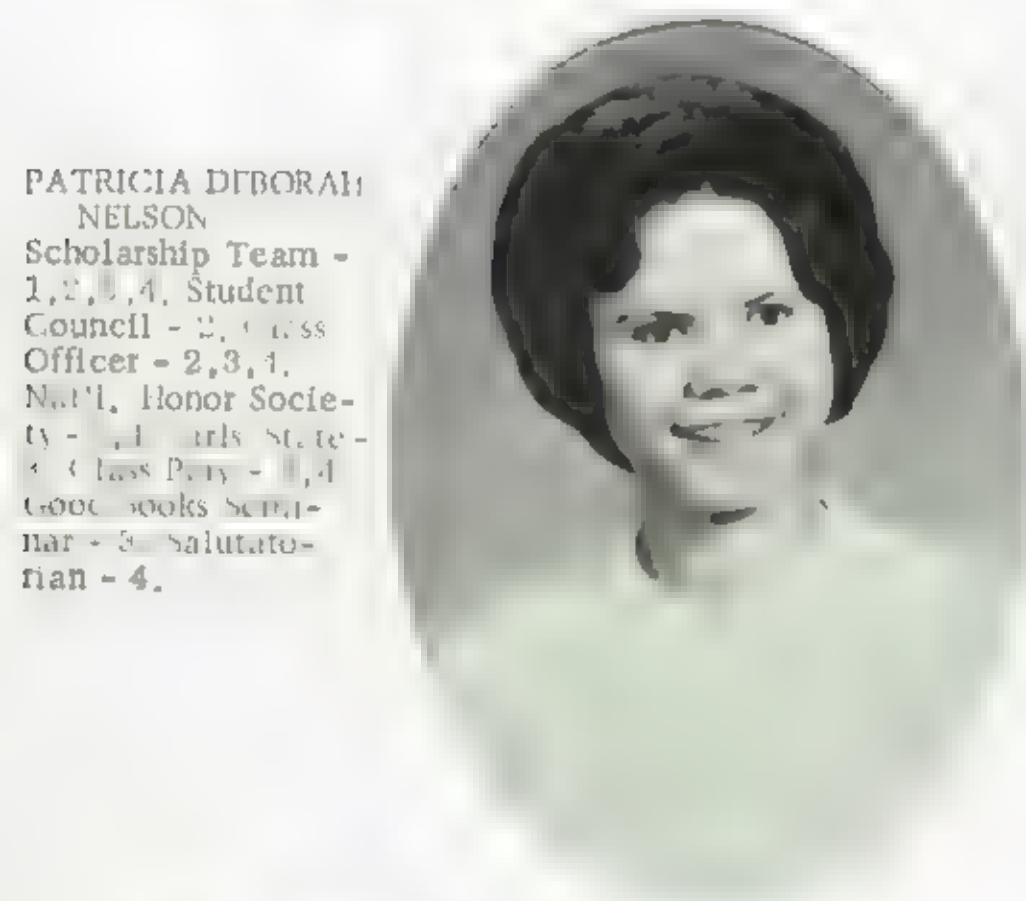 PATRICIA DEBORAH
NELSON
Scholarship Team -
1,2,3,4. Student
Council - 2. Class
Officer - 2,3,4.
Nat'l. Honor Socie-
ty - Girls State -
Class Play - ,4
Good Books Semi-
nar - 3. Salutato-
rian - 4.